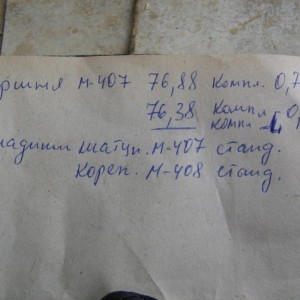 ршня М-407 76,88 компл. 0,7
76,38 компл 0,
компл - 1
ладыши шатун. М-407 станд.
Корен. М-408 станд.